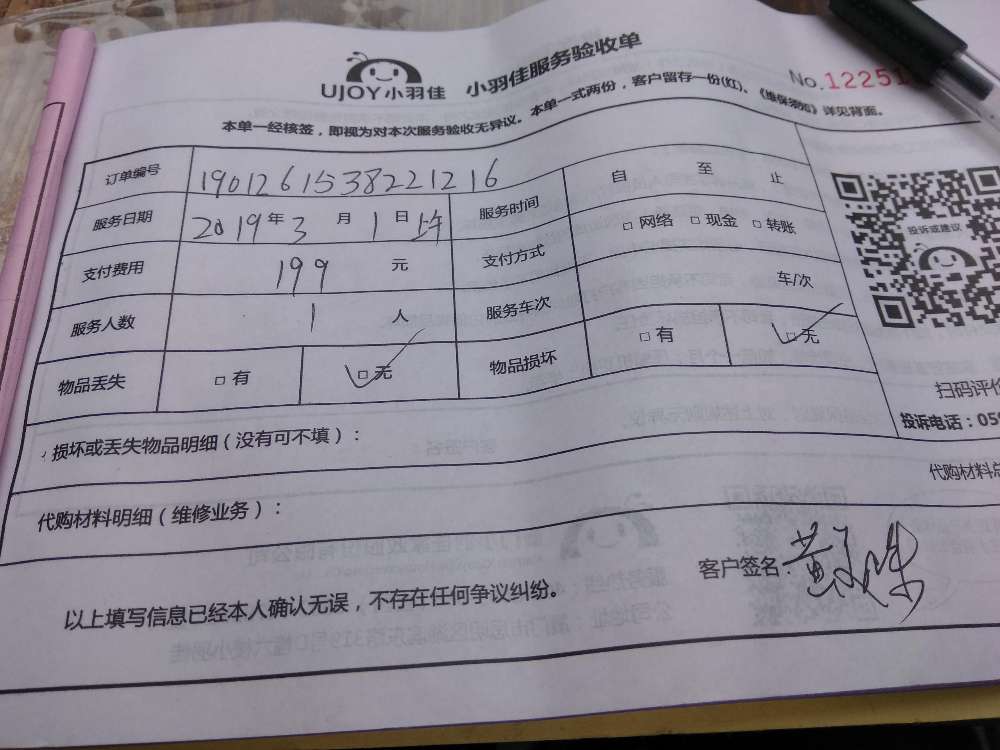 UJOY小羽佳 小羽佳服务验收单 No.12251
本单一经核签，即视为对本次服务验收无异议。本单一式两份，客户留存一份(红)、《维保须知》详见背面。
订单编号 190126153822121 6
服务日期 2019年3月1日上午 服务时间 自 至 止
支付费用 199 元 支付方式 □网络 □现金 □转账
服务人数 1 人 服务车次 车/次
物品丢失 □有 □无 物品损坏 □有 □无
投诉或建议
扫码评价
投诉电话：05
损坏或丢失物品明细（没有可不填）：
代购材料明细（维修业务）： 代购材料总
以上填写信息已经本人确认无误，不存在任何争议纠纷。 客户签名：黄